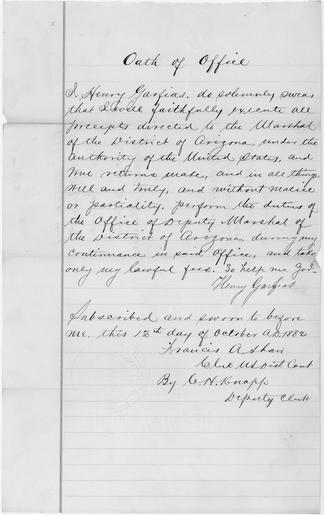 Oath of Office
I, Henry Garfias. do solemnly swear
that I will faithfully execute all
precepts directed to the Marshal
of the District of Arizona, under the
authority of the United States, and
true returns make, and in all things
well and truly, and without malice
or partiality, perform the duties of
the Office of Deputy Marshal of
the District of Arizona, during my
continuance in said Office, and take
only my lawful fees. So help me God-
Henry Garfias
Subscribed and sworn to before
me. this 12th day of October A.D. 1882
Francis A. Shaw
Clerk US Dist Court
By C. H. Knapp
Deputy Clerk